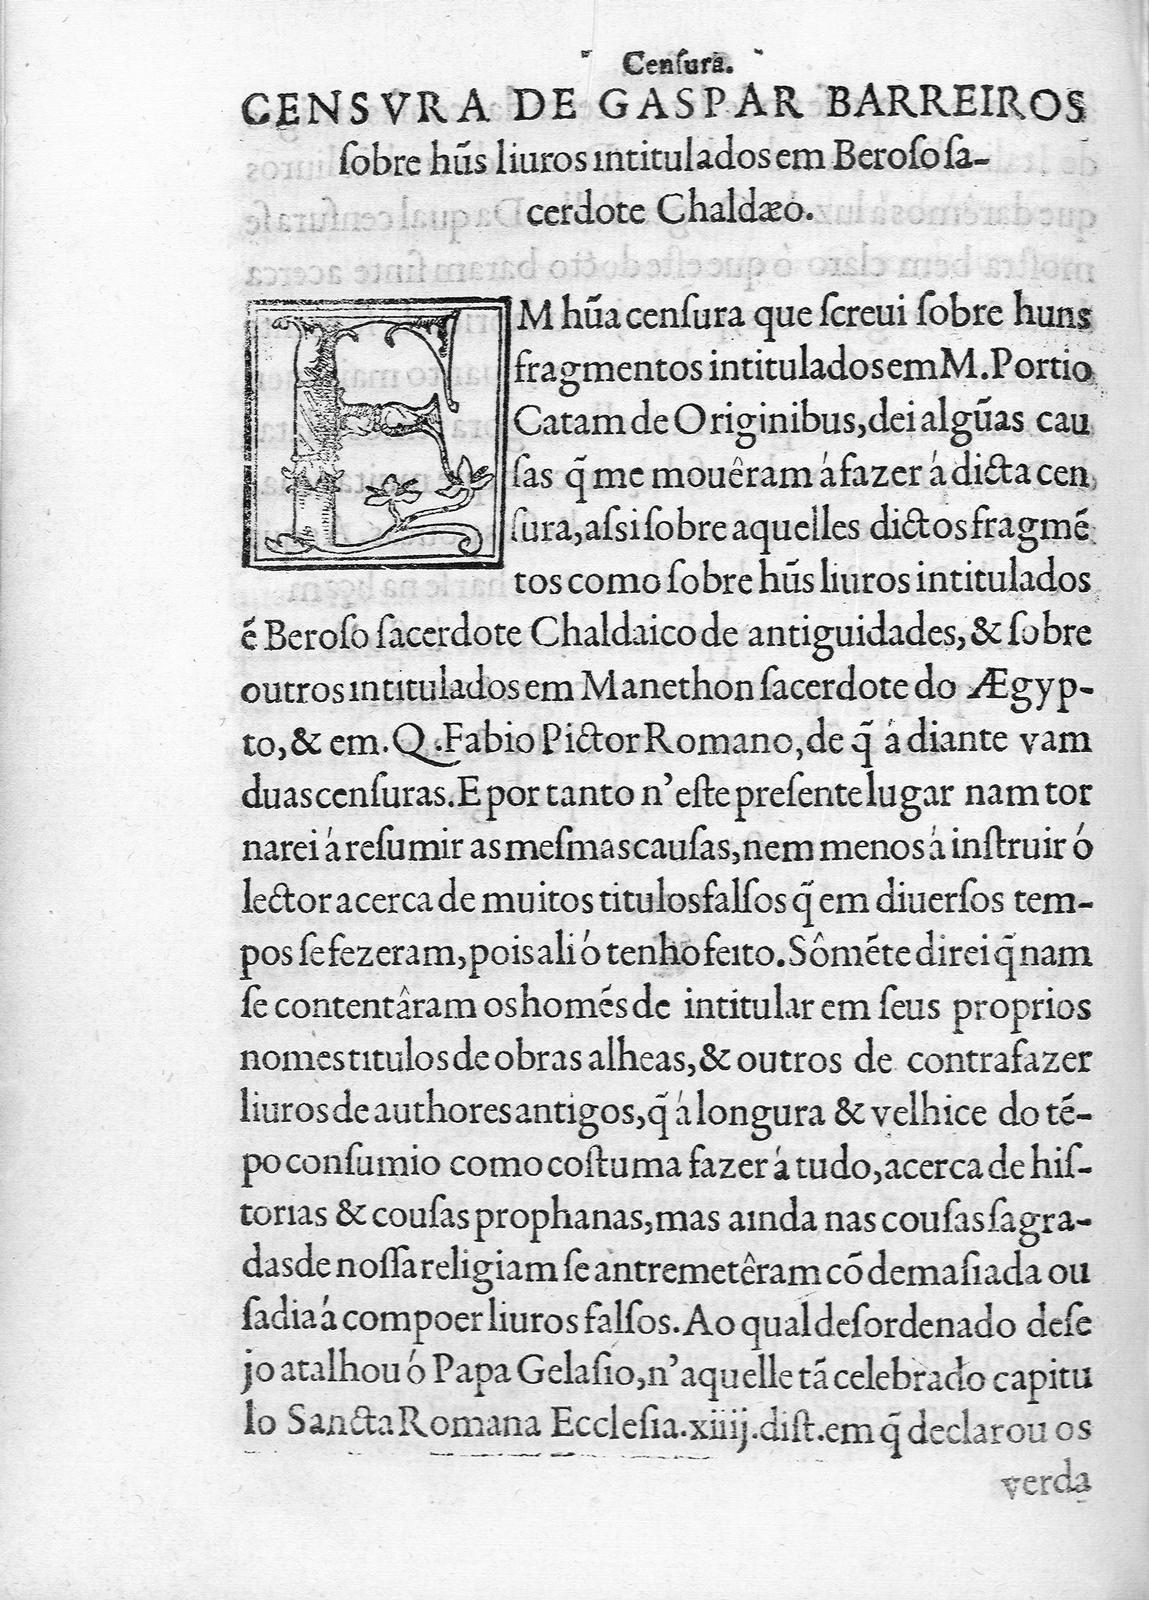 Cenſura.
CENSVRA DE GASPAR BARREIROS
ſobre hũs liuros intitulados em Beroſo ſa-
cerdote Chaldæo.
EM hũa cenſura que ſcreui ſobre huns
fragmentos intitulados em M. Portio
Catam de Originibus, dei algũas cau
ſas q̃ me mouêram á fazer á dicta cen
ſura, aſsi ſobre aquelles dictos fragmẽ
tos como ſobre hũs liuros intitulados
ẽ Beroſo ſacerdote Chaldaico de antiguidades, & ſobre
outros intitulados em Manethon ſacerdote do Ægyp-
to, & em. Q. Fabio Pictor Romano, de q̃ á diante vam
duas cenſuras. E por tanto n'eſte preſente lugar nam tor
narei á reſumir as meſmas cauſas, nem menos á inſtruir ó
lector acerca de muitos titulos falſos q̃ em diuerſos tem-
pos ſe fezeram, pois ali ó tenho feito. Sômẽte direi q̃ nam
ſe contentâram os homẽs de intitular em ſeus proprios
nomes titulos de obras alheas, & outros de contrafazer
liuros de authores antigos, q̃ á longura & velhice do tẽ-
po conſumio como coſtuma fazer á tudo, acerca de hiſ-
torias & couſas prophanas, mas ainda nas couſas ſagra-
das de noſſa religiam ſe antremetêram cõ demaſiada ou
ſadia á compoer liuros falſos. Ao qual deſordenado deſe
jo atalhou ó Papa Gelaſio, n'aquelle tã celebrado capitu
lo Sancta Romana Eccleſia. xiiij. diſt. em q̃ declarou os
verda